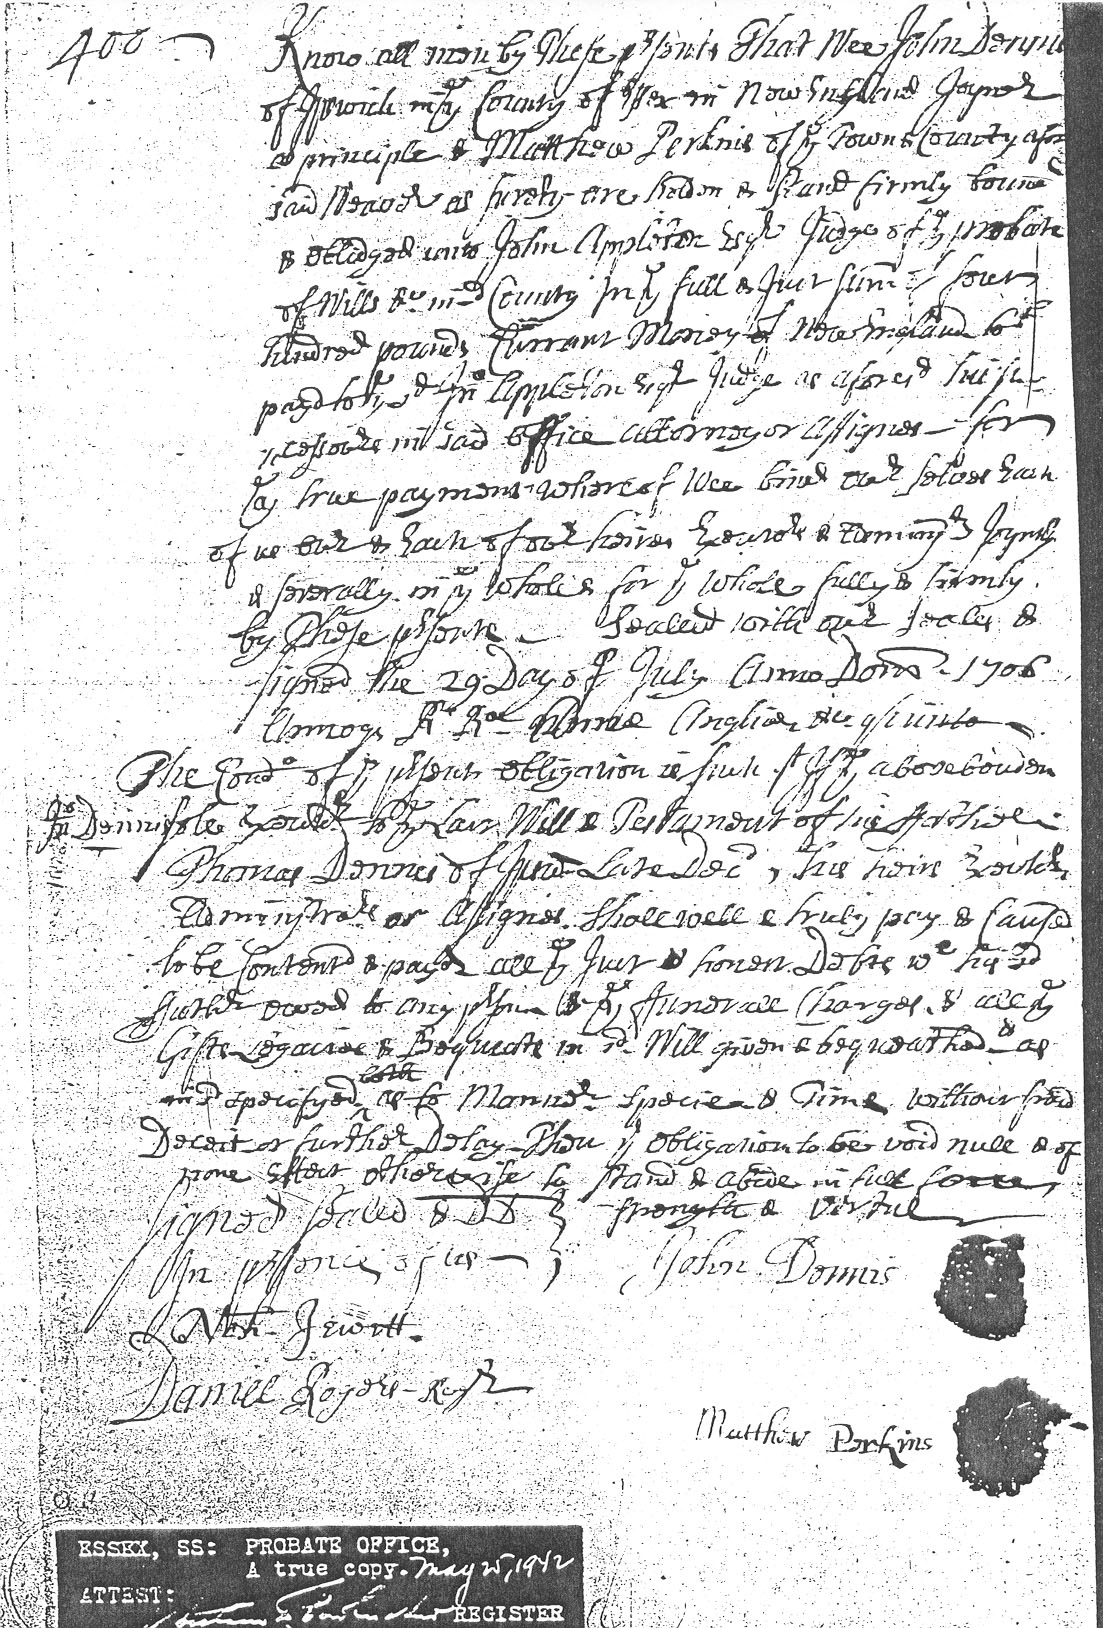 400
Know all men by These psents That Wee John Dennis
of Ipswich in ye County of Essex in New England Joyner
as principle & Matthew Perkins of ye Towne & County afore
said Weaver as surety are holden & stand firmly bound
& oblidged unto John Appleton Esqr Judge of ye probate
of Wills &c in sd County In ye full & Just sum of four
hundred pounds Currant Money of New England to be
payd to ye sd Jno Appleton Esqr Judge as aforesd his suc
cessours in said office attorney or Assignes for
ye true payment whereof Wee bind our selves Each
of us our & Each of our heires Executrs & Adminrs Joyntly
& severally in ye Whole & for ye Whole fully & firmly
by These psents Sealed with our seales &
signed the 29 Day of July Anno Dom 1706
Annoqe R Rae Annae Angliae &c quinto
The Condo of ye psent obligation is such yt If ye abovebounden
Jno Dennis sole Executr to ye Last Will & Testament of his ffather
Thomas Dennis of Ipswd Late Decd, his heirs Executrs
Administratrs or Assignes shall well & truly pay & Caused
to be Contentd & payed all ye Just & honest Debts wc his sd
ffather owed to any pson & ye ffunerall Charges & all ye
Gifts Legacies & Bequests in sd Will given & bequeathed as
in sd specifyed as to Manner specie & Time without fraud
Deceit or further Delay Then ys obligation to be void null & of
none Effect otherwise to stand & abide in full force,
signed sealed & DD } strength & Virtue
In psence of us }
John Dennis
Neh Jewett
Daniel Rogers Regr
Matthew Perkins
ESSEX, SS: PROBATE OFFICE,
A true copy. May 25, 1942
ATTEST:
REGISTER